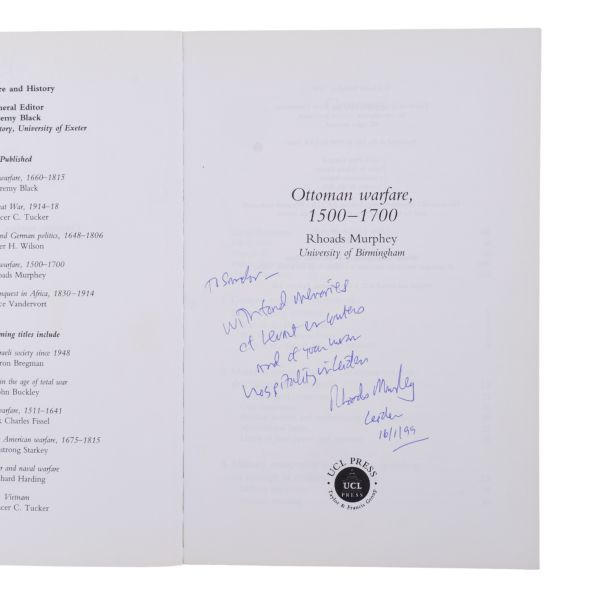 re and History
neral Editor
emy Black
tory, University of Exeter
Published
warfare, 1660–1815
remy Black
at War, 1914–18
cer C. Tucker
nd German politics, 1648–1806
er H. Wilson
warfare, 1500–1700
oads Murphey
nquest in Africa, 1830–1914
ce Vandervort
ming titles include
raeli society since 1948
ron Bregman
in the age of total war
ohn Buckley
warfare, 1511–1641
k Charles Fissel
American warfare, 1675–1815
mstrong Starkey
r and naval warfare
hard Harding
Vietnam
cer C. Tucker
Ottoman warfare,
1500–1700
Rhoads Murphey
University of Birmingham
To Sandor –
with fond memories
of Levant encounters
and of your warm
hospitality in Leiden
Rhoads Murphey
Leiden
16/1/99
UCL PRESS
UCL
PRESS
Taylor & Francis Group